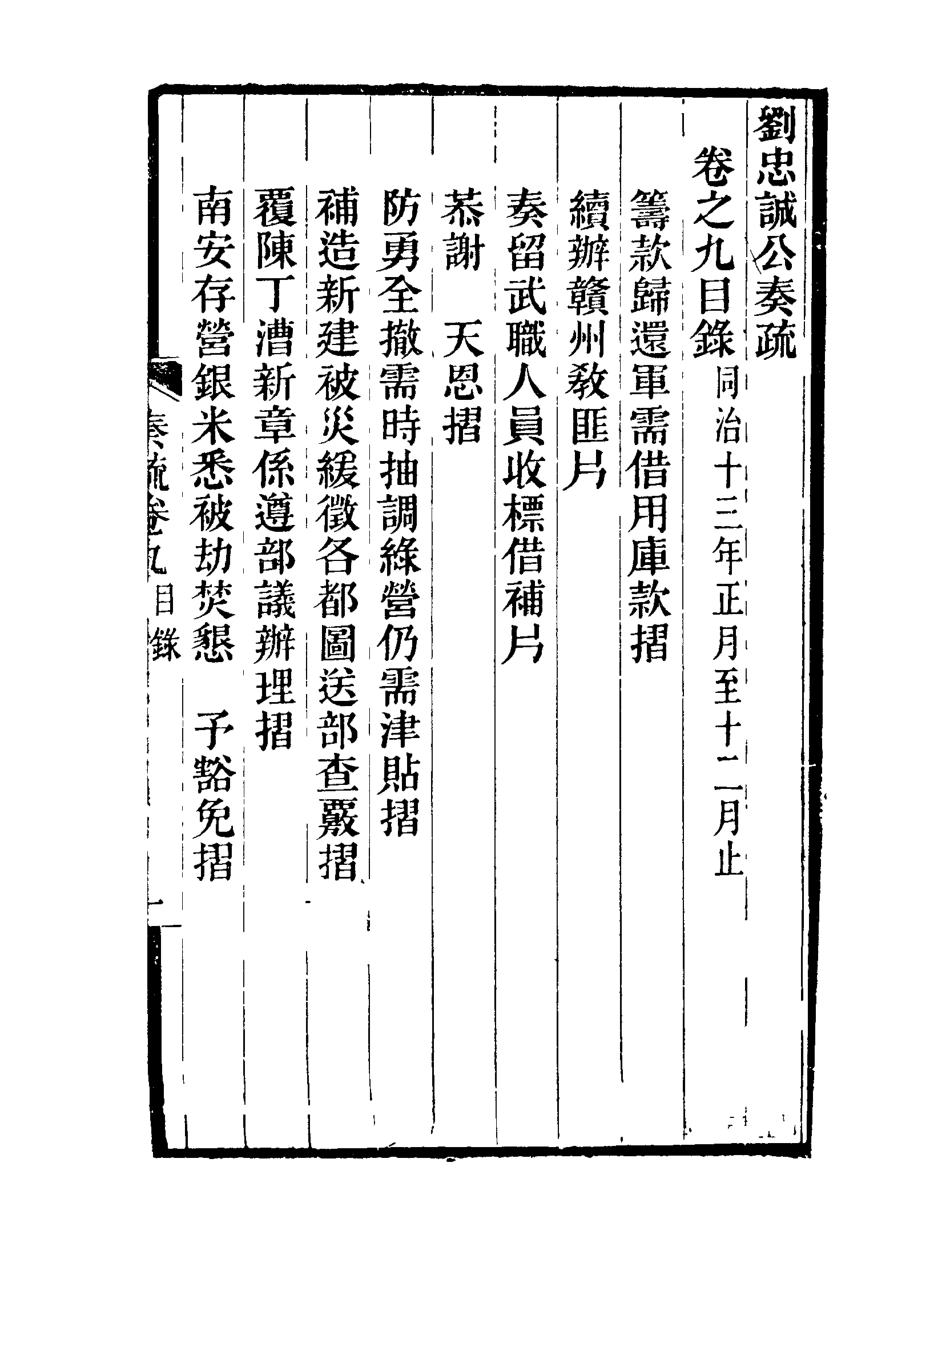 劉忠誠公奏疏
卷之九目錄同治十三年正月至十二月止
籌款歸還軍需借用庫款摺
續辦贛州敎匪片
奏留武職人員收標借補片
恭謝　天恩摺
防勇全撤需時抽調綠營仍需津貼摺
補造新建被災緩徵各都圖送部查覈摺
覆陳丁漕新章係遵部議辦理摺
南安存營銀米悉被劫焚懇　予豁免摺
奏疏卷九目錄　一